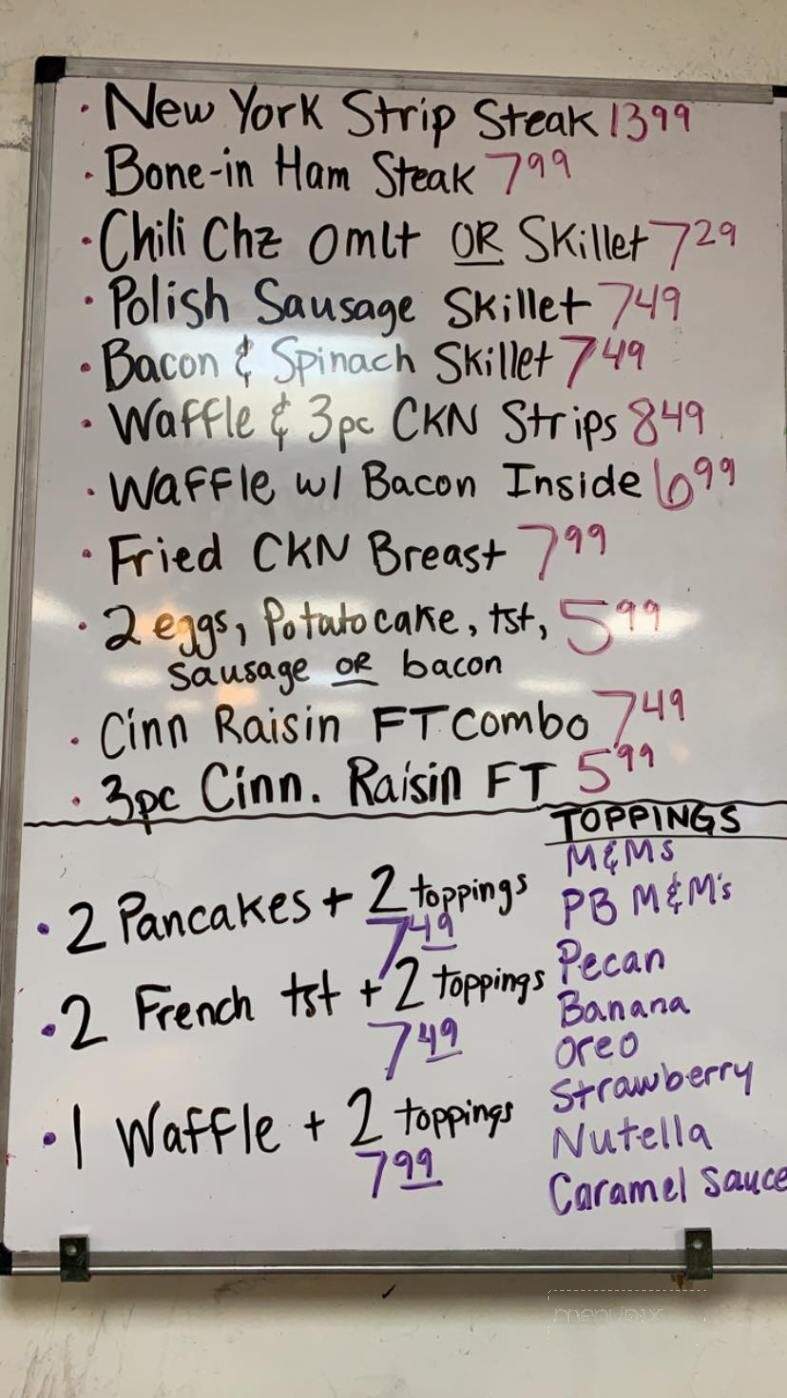 · New York Strip Steak 13 99
· Bone-in Ham Steak 7 99
· Chili Chz Omlt OR Skillet 7 29
· Polish Sausage Skillet 7 49
· Bacon & Spinach Skillet 7 49
· Waffle & 3pc CKN Strips 8 49
· Waffle w/ Bacon Inside 6 99
· Fried CKN Breast 7 99
· 2 eggs, Potato cake, tst, 5 99
Sausage OR bacon
· Cinn Raisin FT Combo 7 49
· 3pc Cinn. Raisin FT 5 99
· 2 Pancakes + 2 toppings
7 49
· 2 French tst + 2 toppings
7 49
· 1 Waffle + 2 toppings
7 99
TOPPINGS
M&Ms
PB M&M's
Pecan
Banana
Oreo
Strawberry
Nutella
Caramel Sauce
menupix